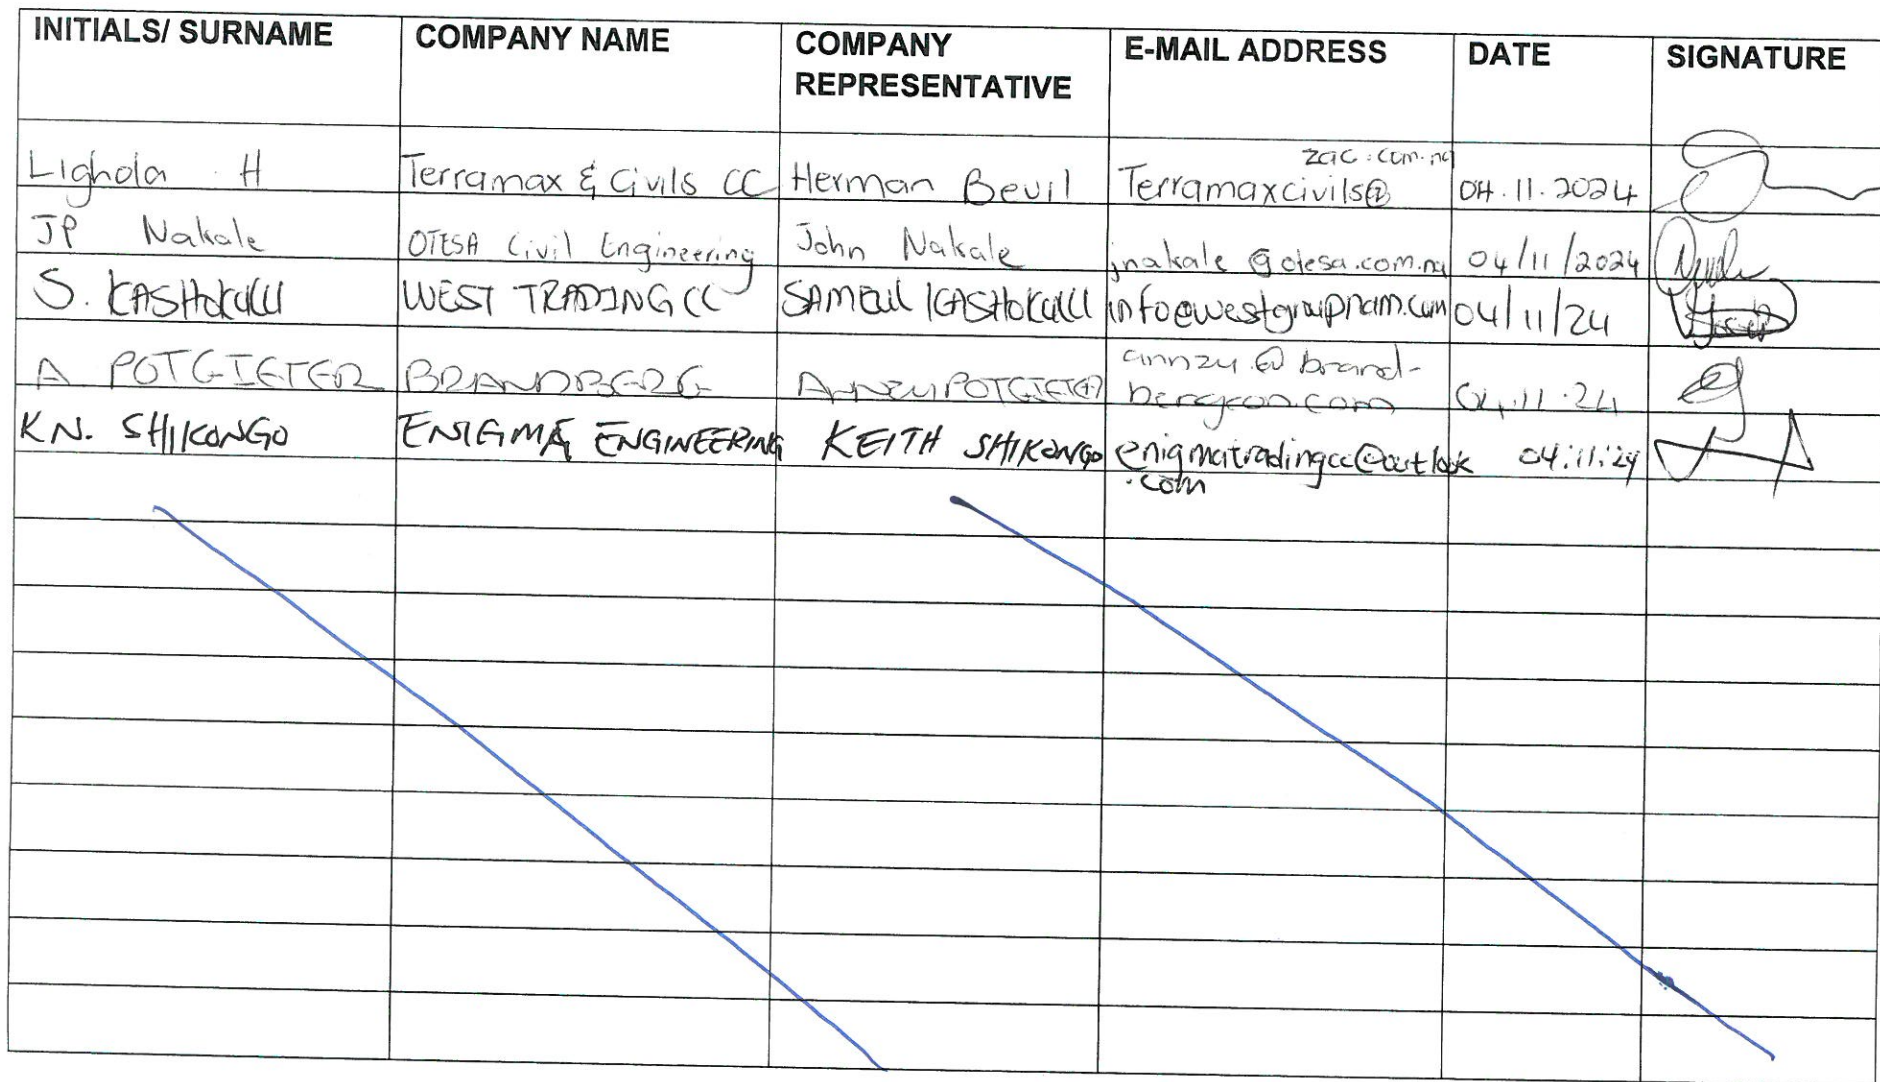 INITIALS/ SURNAME COMPANY NAME COMPANY REPRESENTATIVE E-MAIL ADDRESS DATE SIGNATURE
Lighola H Terramax & Civils CC Herman Bevil Terramaxcivils@ zac.com.na 04.11.2024
JP Nakale OTESA Civil Engineering John Nakale jnakale@otesa.com.na 04/11/2024
S. KASHOKULU WEST TRADING CC SAMEUL KASHOKULU info@westgroupnam.com 04/11/24
A POTGIETER BRANDBERG ANNZU POTGIETER annzu@brand-
bergcon.com 04.11.24
KN. SHIKONGO ENIGMA ENGINEERING KEITH SHIKONGO enigmatradingcc@outlook 04:11:24
.com